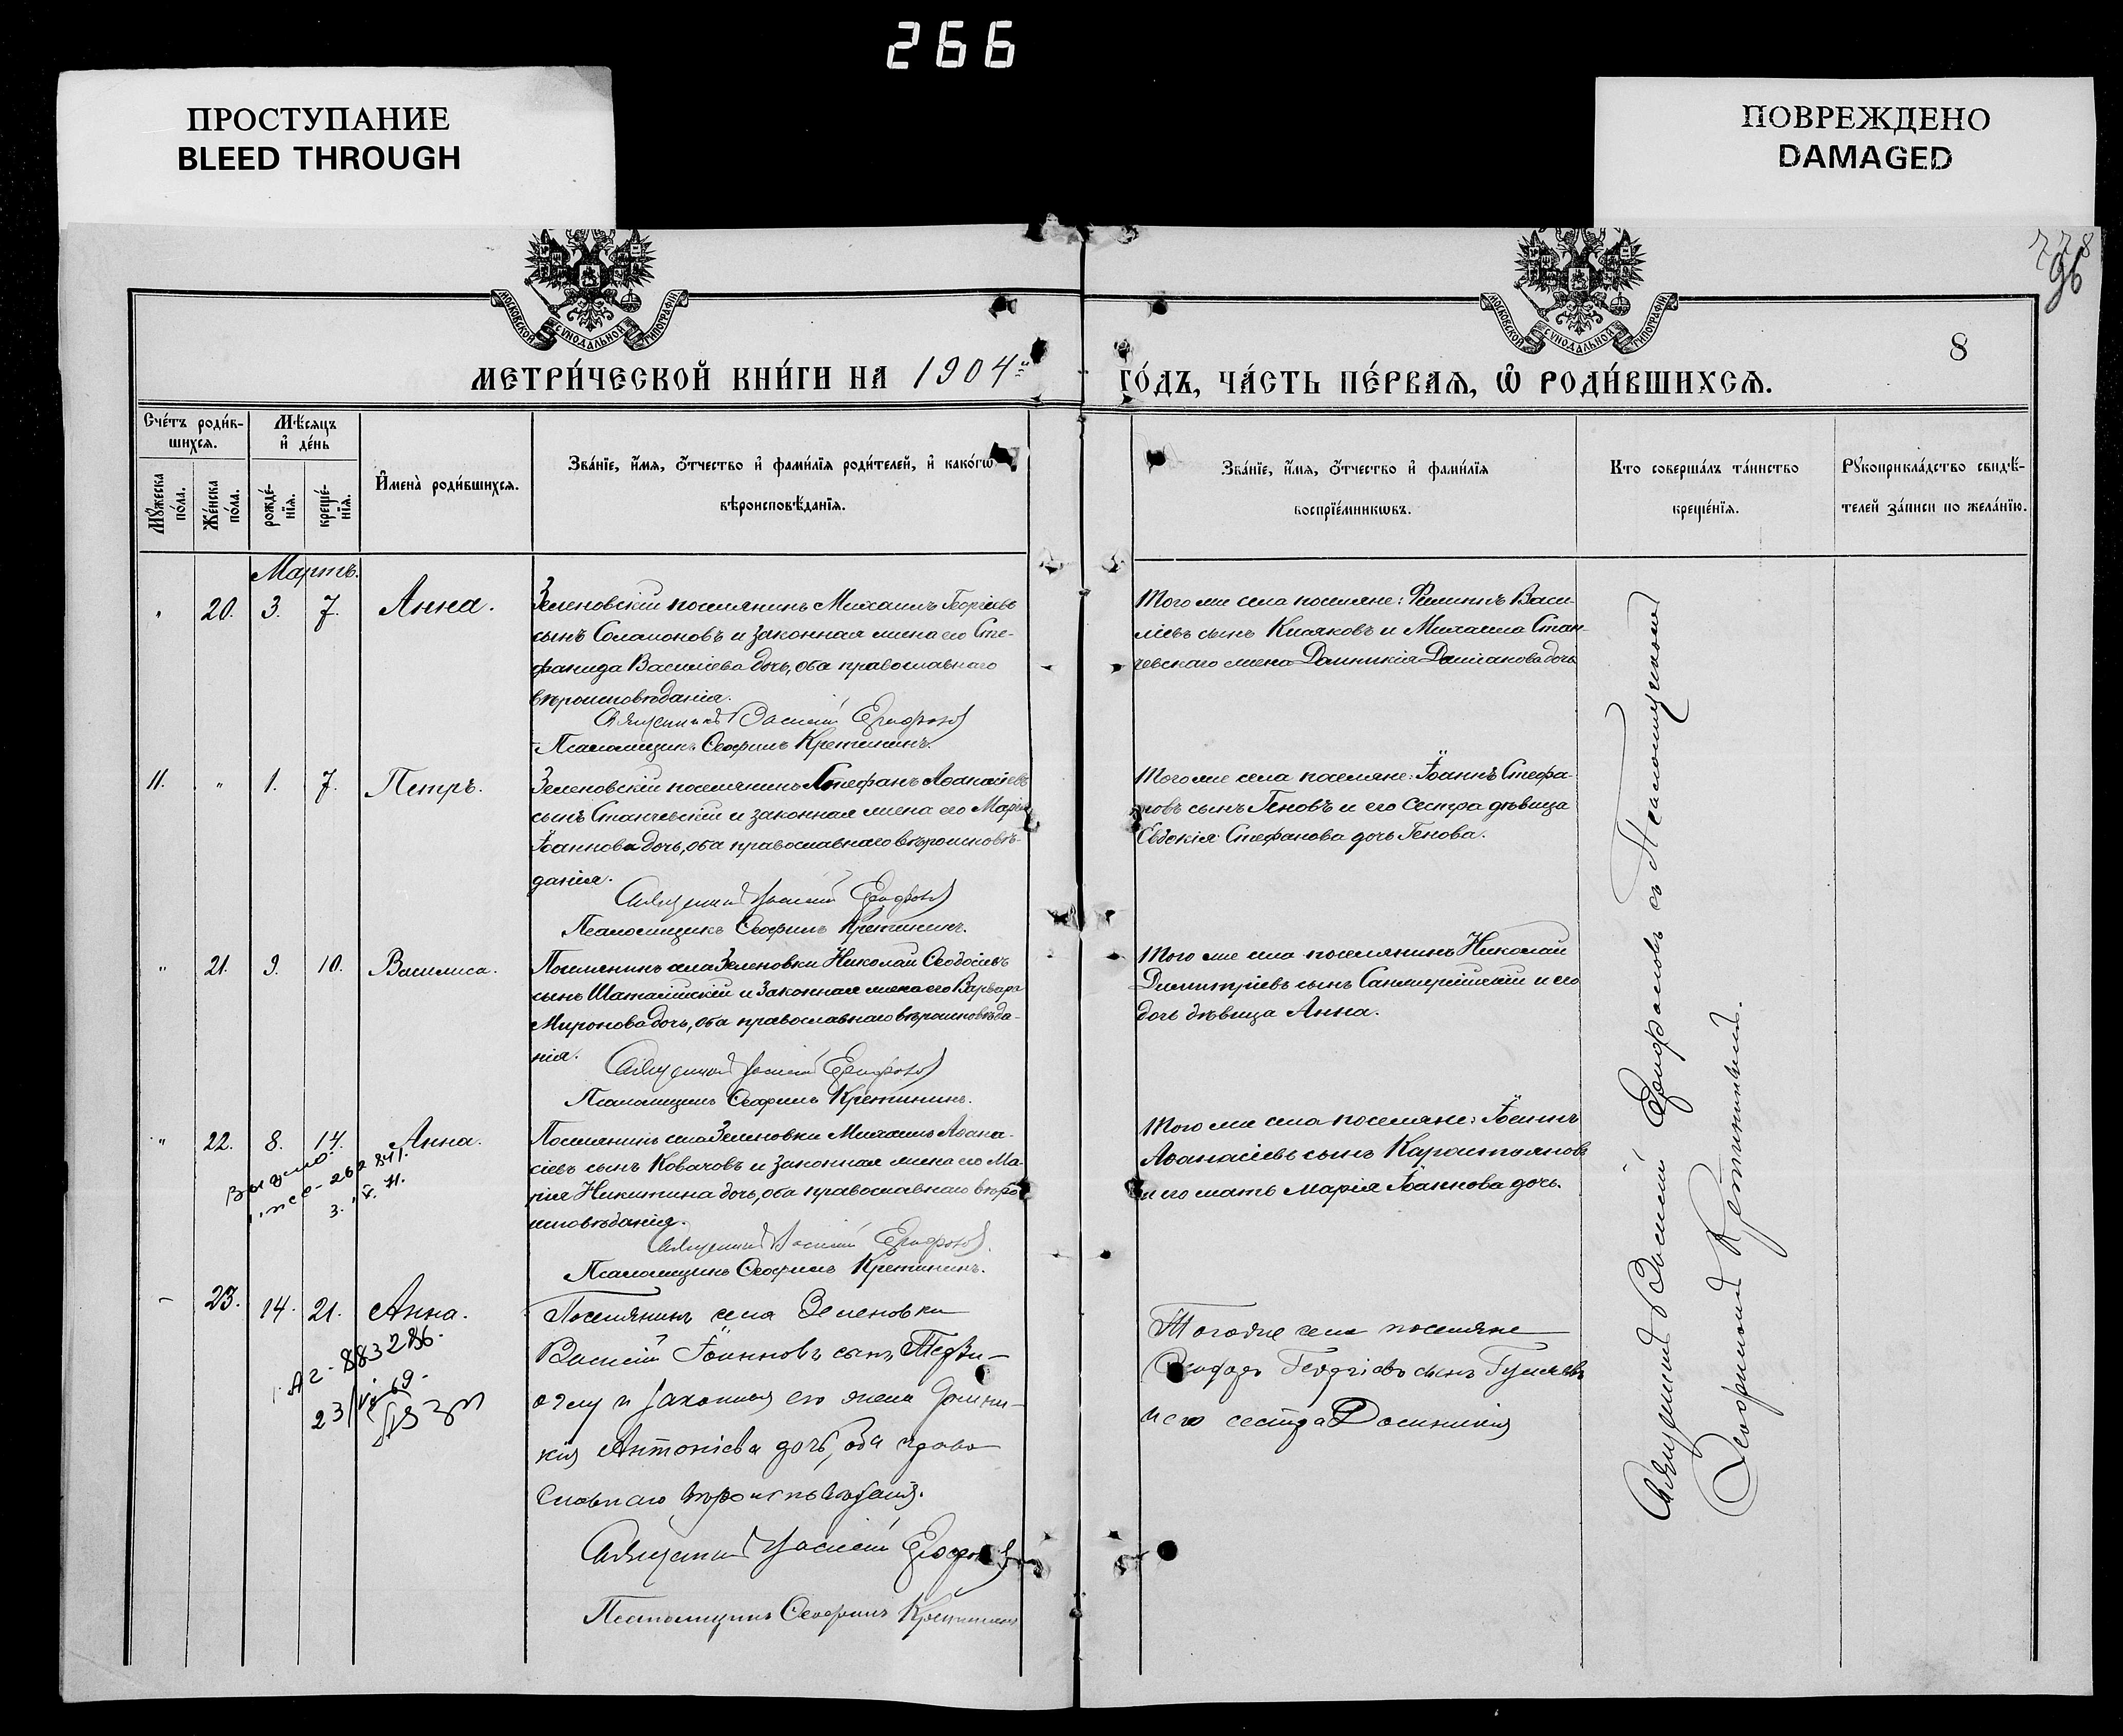 266
ПРОСТУПАНИЕ
BLEED THROUGH
ПОВРЕЖДЕНО
DAMAGED
96
8
МОСКОВСКОЙ СѴНОДАЛЬНОЙ ТИПОГРАФІИ
МОСКОВСКОЙ СѴНОДАЛЬНОЙ ТИПОГРАФІИ
МЕТРИ́ЧЕСКОЙ КНИ́ГИ НА 1904й ГО́ДЪ, ЧА́СТЬ ПЕ́РВАѦ, Ѽ РОДИ́ВШИХСѦ.
Сче́тъ роди́вшихсѧ.
Мѣ́сѧцъ и҆ де́нь
Мꙋ́жеска по́ла.
Же́нска по́ла.
рожде́нїѧ.
креще́нїѧ.
И҆мена̀ роди́вшихсѧ.
Зва́нїе, и҆́мѧ, ѻ҆́тчество и҆ фами́лїѧ роди́телей, и҆ како́гѡ
вѣроисповѣ́данїѧ.
Зва́нїе, и҆́мѧ, ѻ҆́тчество и҆ фами́лїѧ
воспрїе́мникѡвъ.
Кто̀ соверша́лъ та́инство
креще́нїѧ.
Рꙋкоприкла́дство свидѣ́-
телей за́писи по жела́нїю.
Мартъ.
" 20. 3. 7. Анна.
Зеленовскій поселянинъ Михаилъ Георгіевъ
сынъ Соломоновъ и законная жена его Сте-
фанида Василіева дочь, оба православнаго
вѣроисповѣданія.
Священникъ Василій
Псаломщикъ Ѳеофилъ Кретининъ.
Того же села поселяне: Филиппъ Васи-
ліевъ сынъ Кияковъ и Михаила Стан-
чевскаго жена Домникія Даміанова дочь
11. " 1. 7. Петръ.
Зеленовскій поселянинъ Стефанъ Аѳанасіевъ
сынъ Станчевскій и законная жена его Марія
Іоаннова дочь, оба православнаго вѣроисповѣ-
данія.
Священникъ Василій
Псаломщикъ Ѳеофилъ Кретининъ.
Того же села поселяне: Іоаннъ Стефа-
новъ сынъ Геновъ и его сестра дѣвица
Евдокія Стефанова дочь Генова.
" 21. 9. 10. Василиса.
Поселянинъ села Зеленовки Николай Ѳеодосіевъ
сынъ и законная жена его Варвара
Миронова дочь, оба православнаго вѣроисповѣда-
нія.
Священникъ Василій
Псаломщикъ Ѳеофилъ Кретининъ.
Того же села поселянинъ Николай
Димитріевъ сынъ и его
дочь дѣвица Анна.
" 22. 8. 14. Анна.
Поселянинъ села Зеленовки Михаилъ Аѳана-
сіевъ сынъ Ковачовъ и законная жена его Ма-
рія Никитина дочь, оба православнаго вѣро-
исповѣданія.
Священникъ Василій
Псаломщикъ Ѳеофилъ Кретининъ.
Того же села поселяне: Іоаннъ
Аѳанасіевъ сынъ Карастояновъ
и его мать Марія Іоаннова дочь.
– 23. 14. 21. Анна.
883286
Поселянинъ села Зеленовки
Василій Іоанновъ сынъ
и законная его жена Домни-
кія Антоніева дочь, оба право
славнаго вѣроисповѣданія.
Священникъ Василій
Псаломщикъ Ѳеофилъ Кретининъ
Тогоже села поселяне
Георгіевъ сынъ
и его сестра Домникія
Священникъ Василій съ Псаломщикомъ
Ѳеофиломъ Кретининымъ.